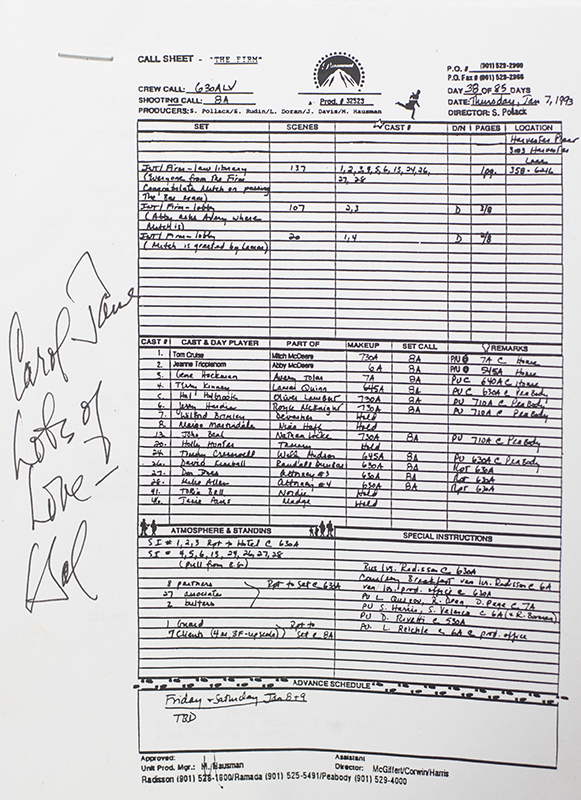 CALL SHEET - "THE FIRM"
Paramount
P.O. # (901) 529-2966
P.O. Fax # (901) 529-2965
CREW CALL: 630A LV
DAY 38 OF 85 DAYS
SHOOTING CALL: 8A
Prod. # 32523
DATE: Thursday, Jan 7, 1993
PRODUCERS: S. Pollack/S. Rudin/L. Doran/J. Davis/M. Hausman
DIRECTOR: S. Pollack
SET SCENES CAST # D/N PAGES LOCATION
Harvester Plant
3003 Harvester
Lane
Int/ Firm - law library 137 1, 2, 3, 4, 5, 6, 13, 24, 26, 1pg. 358-6216
(Everyone from The Firm 27, 28
Congratulates Mitch on passing
The Bar exam)
Int/ Firm - lobby 107 2, 3 D 3/8
(Abby asks Avery where
Mitch is)
Int/ Firm - lobby 20 1, 4 D 2/8
(Mitch is greeted by Lamar)
CAST # CAST & DAY PLAYER PART OF MAKEUP SET CALL REMARKS
1. Tom Cruise Mitch McDeere 730A 8A P/U @ 7A C Home
2. Jeanne Tripplehorn Abby McDeere 6A 8A P/U @ 545A Home
3. Gene Hackman Avery Tolar 7A 8A PU C 640A C Home
4. Terry Kinney Lamar Quinn 645A 8A PU C 630A C Peabody
5. Hal Holbrook Oliver Lambert 730A 8A PU 710A C Peabody
6. Jerry Hardin Royce McKnight 730A 8A PU 710A C Peabody
7. Wilford Brimley Devasher Hold
8. Margo Martindale Nina Huff Hold
13. John Beal Nathan Locke 730A 8A PU 710A C Peabody
20. Holly Hunter Tammy Hold
24. Timothy Creswell Wally Hudson 645A 8A PU 630A C Peabody
26. David Kimball Randall Dunbar 630A 8A Rpt 630A
27. Don Jones Attorney #3 630A 8A Rpt 630A
28. Mike Allen Attorney #4 630A 8A Rpt 630A
41. Tobin Bell Nordic Hold
46. Hold
ATMOSPHERE & STANDINS SPECIAL INSTRUCTIONS
SI # 1, 2, 3 Rpt to Hotel C 630A
SI # 4, 5, 6, 13, 24, 26, 27, 28
(pull from B.G.)
8 partners
27 associates
2 butlers
Rpt to Set C 630A
1 Guard
7 Clients (4m, 3F-upscale)
Rpt to Set C 8A
Bus lvs. Radisson C 630A
Courtesy Breakfast van lvs. Radisson C 6A
van lvs. prod. office C 630A
PU L. Quiroz, R. Dean, D. Page C 7A
PU S. Harris, S. Valencia C 6A (+ R. Borman)
PU D. Rivetti C 530A
PU L. Reichle C 6A C prod. office
ADVANCE SCHEDULE
Friday + Saturday Jan 8+9
TBD
Approved:
Unit Prod. Mgr.: M. Hausman
Assistant
Director: McGiffert/Corwin/Harris
Radisson (901) 528-1800/Ramada (901) 525-5491/Peabody (901) 529-4000
Carol Jane
Lots of
Love -
Hal